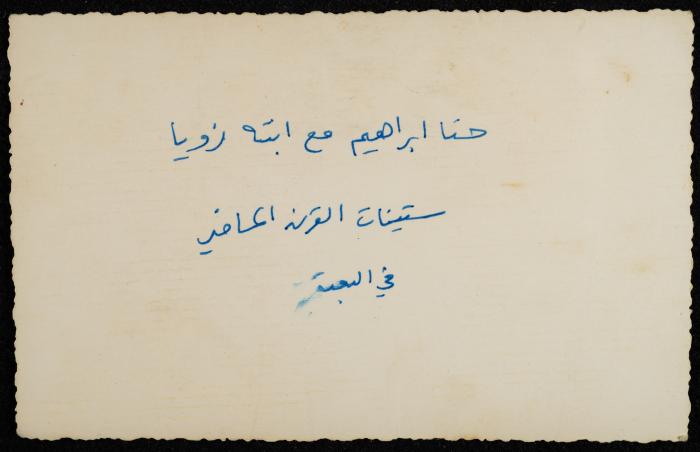 حنا ابراهيم مع ابنته زويا
ستينات القرن الماضي
في البعنة